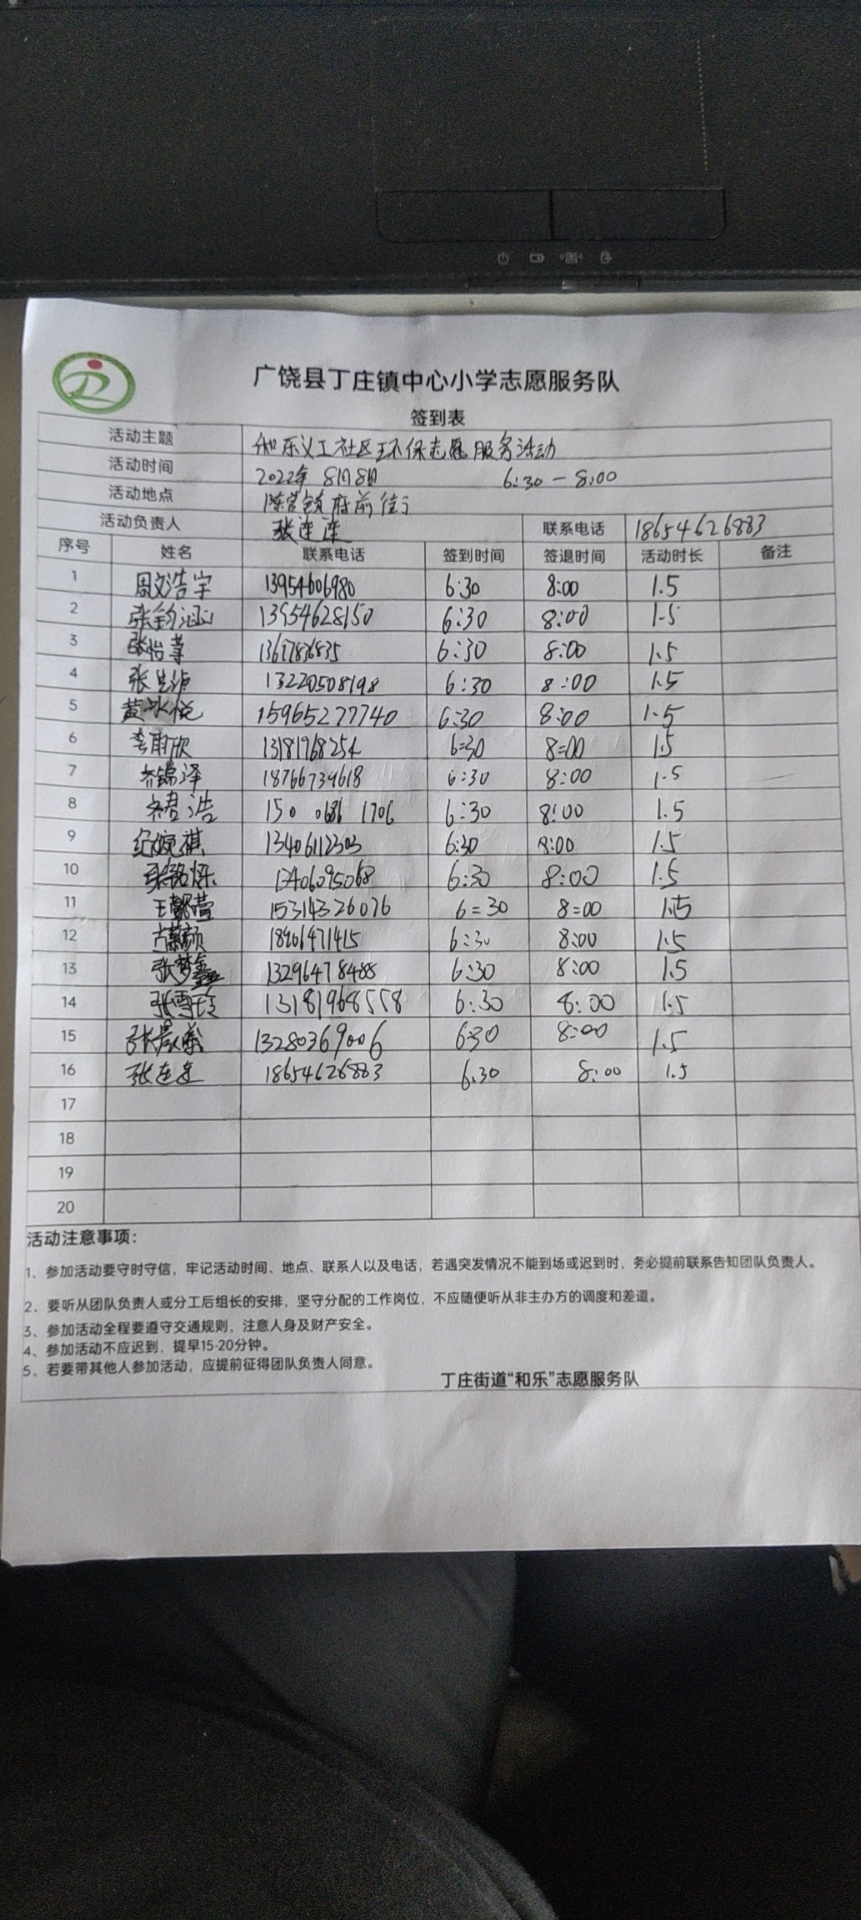 广饶县丁庄镇中心小学志愿服务队
签到表
活动主题 和乐义工社区环保志愿服务活动
活动时间 2022年 8月8日 6:30-8:00
活动地点 陈官镇府前街
活动负责人 张连连 联系电话 18654626883
序号 姓名 联系电话 签到时间 签退时间 活动时长 备注
1 周文浩宇 13954606980 6:30 8:00 1.5
2 张钧涵 13554628150 6:30 8:00 1.5
3 张怡 6:30 8:00 1.5
4 张 13220508198 6:30 8:00 1.5
5 黄冰悦 15965277740 6:30 8:00 1.5
6 李雨欣 13181768254 6:30 8:00 1.5
7 齐锦泽 18766734618 6:30 8:00 1.5
8 浩 150 0686 1706 6:30 8:00 1.5
9 纪婉祺 13406112303 6:30 8:00 1.5
10 张铭烁 13406095068 6:30 8:00 1.5
11 王馨萱 15314326076 6=30 8=00 1.5
12 18906471415 6:30 8:00 1.5
13 张梦鑫 13296478488 6:30 8:00 1.5
14 张雪 13181968558 6:30 8:00 1.5
15 张晨 13280369006 6:30 8:00 1.5
16 张连连 18654626883 6:30 8:00 1.5
17
18
19
20
活动注意事项：
1、参加活动要守时守信，牢记活动时间、地点、联系人以及电话，若遇突发情况不能到场或迟到时，务必提前联系告知团队负责人。
2、要听从团队负责人或分工后组长的安排，坚守分配的工作岗位，不应随便听从非主办方的调度和差遣。
3、参加活动全程要遵守交通规则，注意人身及财产安全。
4、参加活动不应迟到，提早15-20分钟。
5、若要带其他人参加活动，应提前征得团队负责人同意。
丁庄街道“和乐”志愿服务队